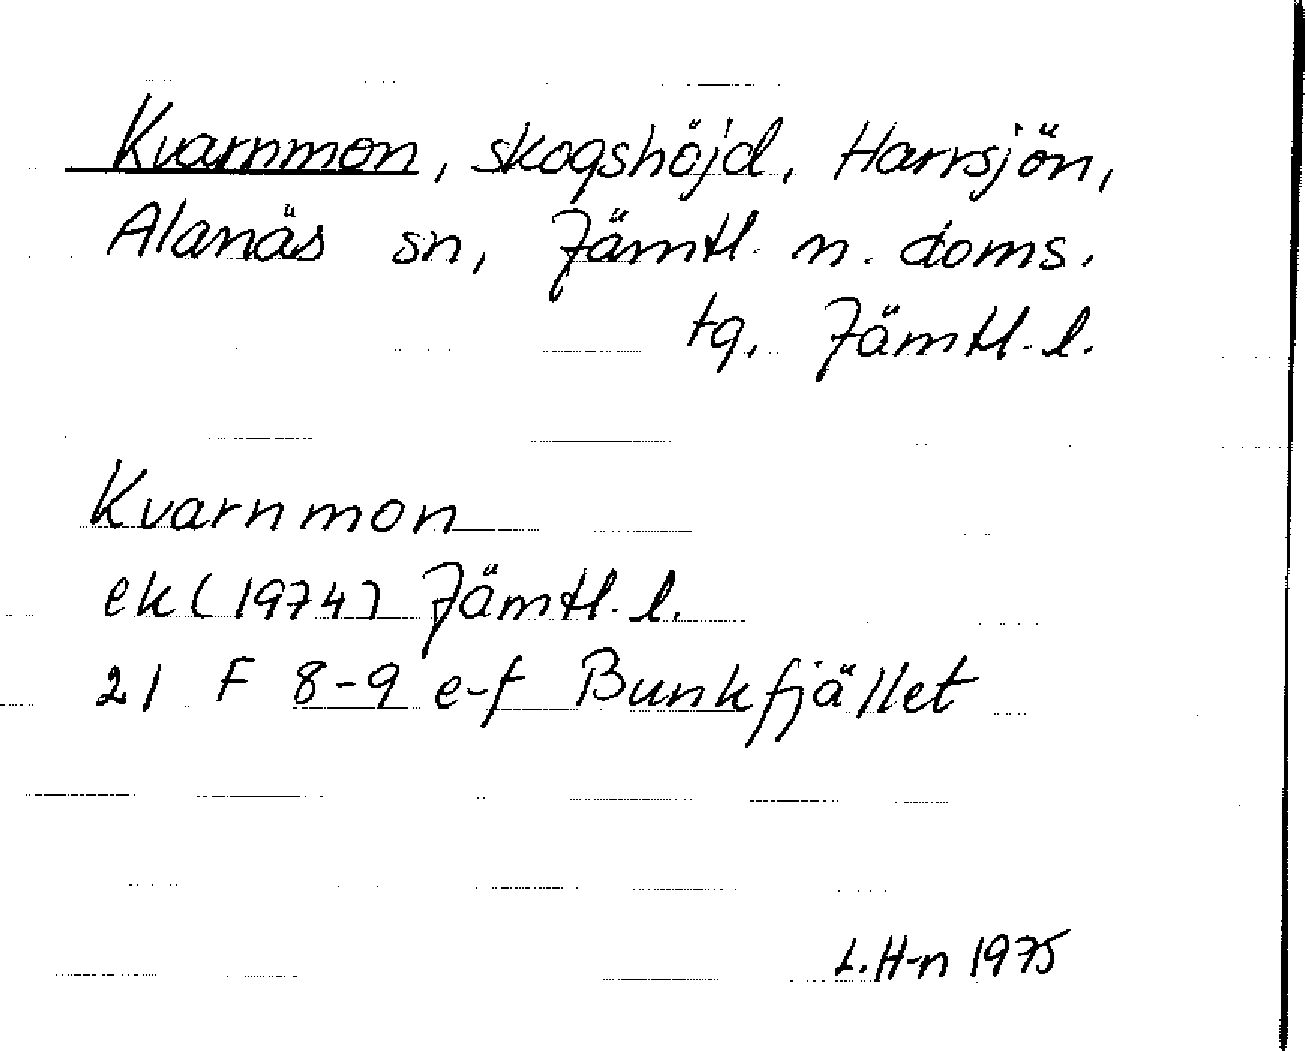 Kvarnmon, skogshöjd, Harrsjön,
Alanäs sn, Jämtl. n. doms.
tg, Jämtl. l.
Kvarnmon
ek (1974) Jämtl. l.
21 F 8-9 e-f Bunkfjället
L. H-n 1975